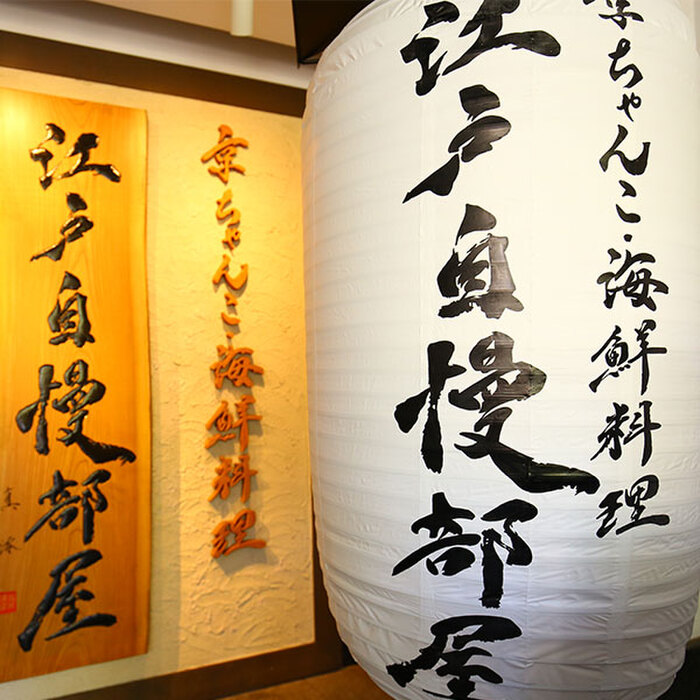 京ちゃんこ・海鮮料理
江戸自慢部屋
京ちゃんこ・海鮮料理
江戸自慢部屋